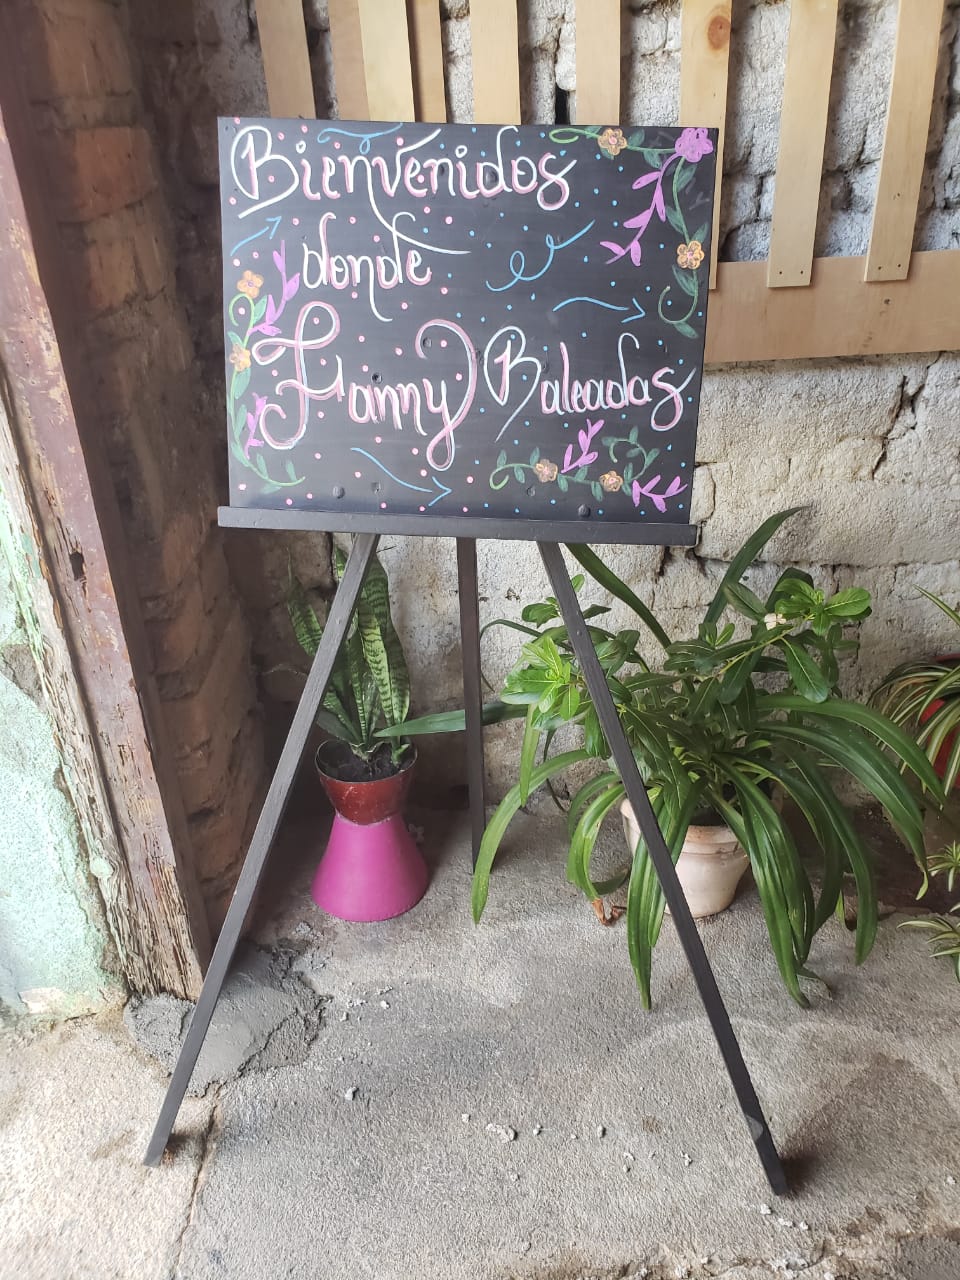 Bienvenidos
donde
Fanny Baleadas